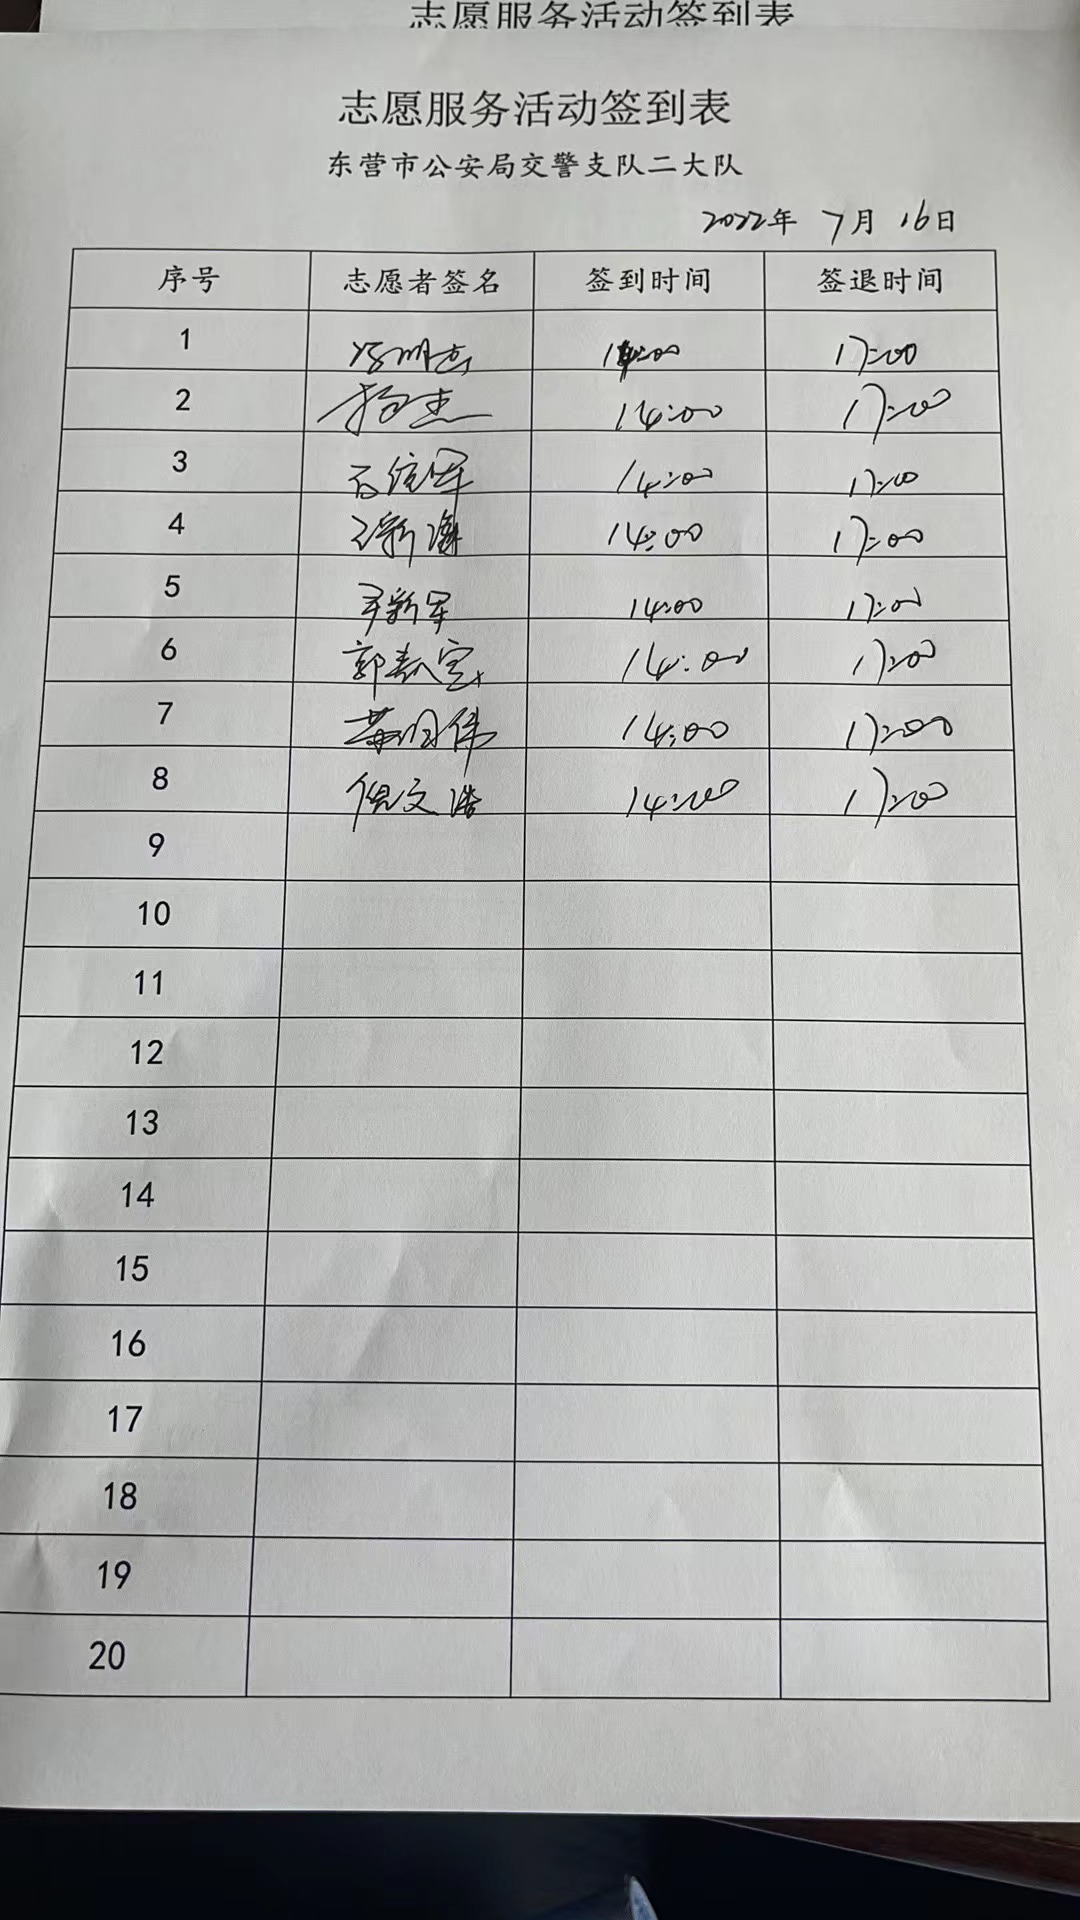 志愿服务活动签到表
志愿服务活动签到表
东营市公安局交警支队二大队
2022年 7月 16日
序号 志愿者签名 签到时间 签退时间
1 14:00 17:00
2 14:00 17:00
3 14:00 17:00
4 14:00 17:00
5 新军 14:00 17:00
6 郭 14:00 17:00
7 14:00 17:00
8 倪文浩 14:00 17:00
9
10
11
12
13
14
15
16
17
18
19
20